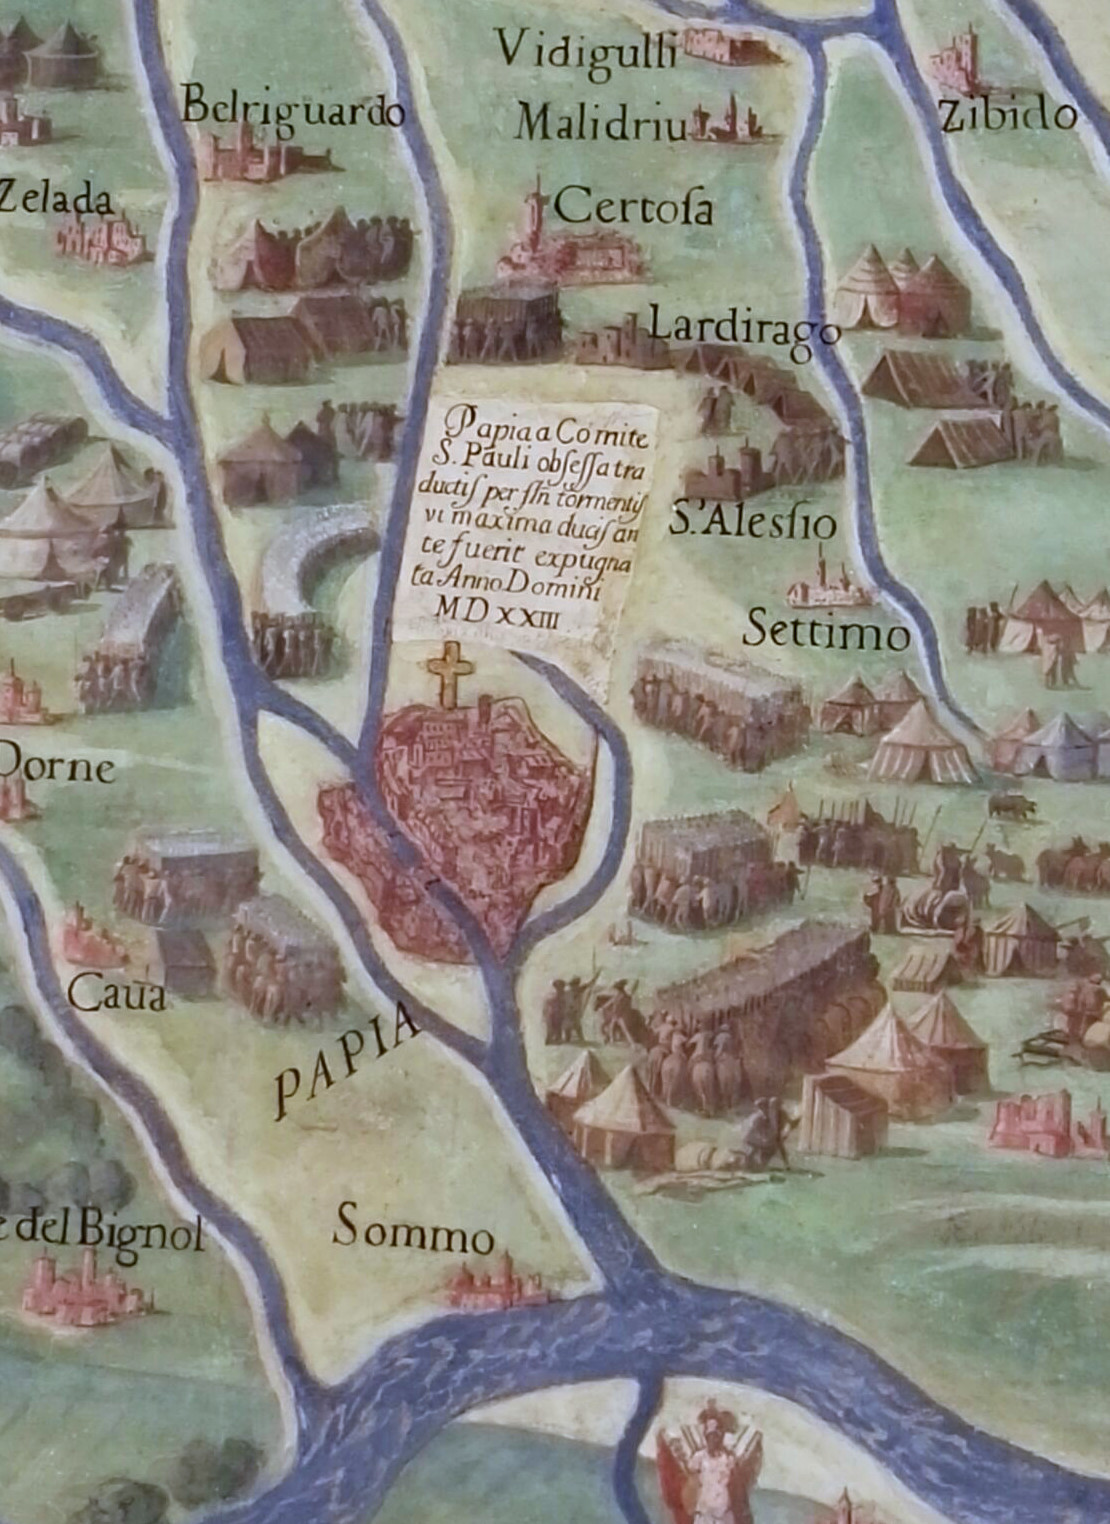 Vidigulli
Belriguardo
Malidriu
Zibido
Zelada
Certoſa
Lardirago
Papia a Comite
S. Pauli obſeſſa tra
ductiſ per ſlñ tormentiſ
vi maxima duciſ an
te fuerit expugna
ta Anno Domini
MD XXIII
S. Aleſſio
Settimo
Dorne
Caua
PAPIA
del Bignol
Sommo